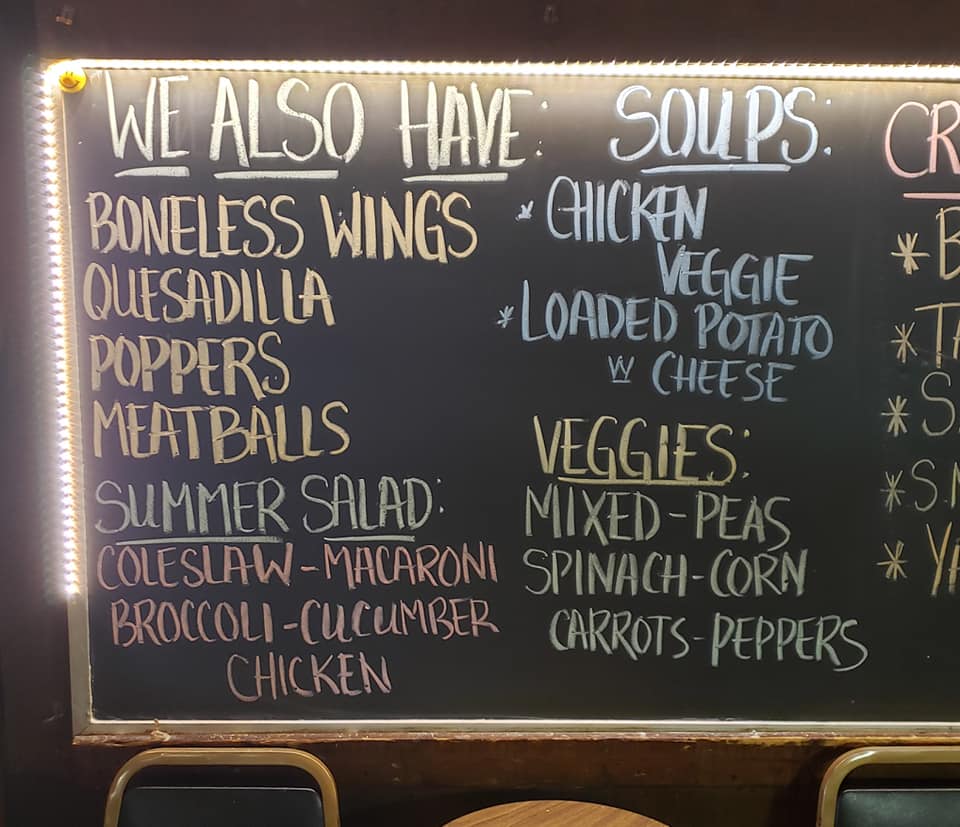 WE ALSO HAVE:
BONELESS WINGS
QUESADILLA
POPPERS
MEATBALLS
SUMMER SALAD:
COLESLAW - MACARONI
BROCCOLI - CUCUMBER
CHICKEN
SOUPS:
* CHICKEN
VEGGIE
* LOADED POTATO
W CHEESE
VEGGIES:
MIXED - PEAS
SPINACH - CORN
CARROTS - PEPPERS